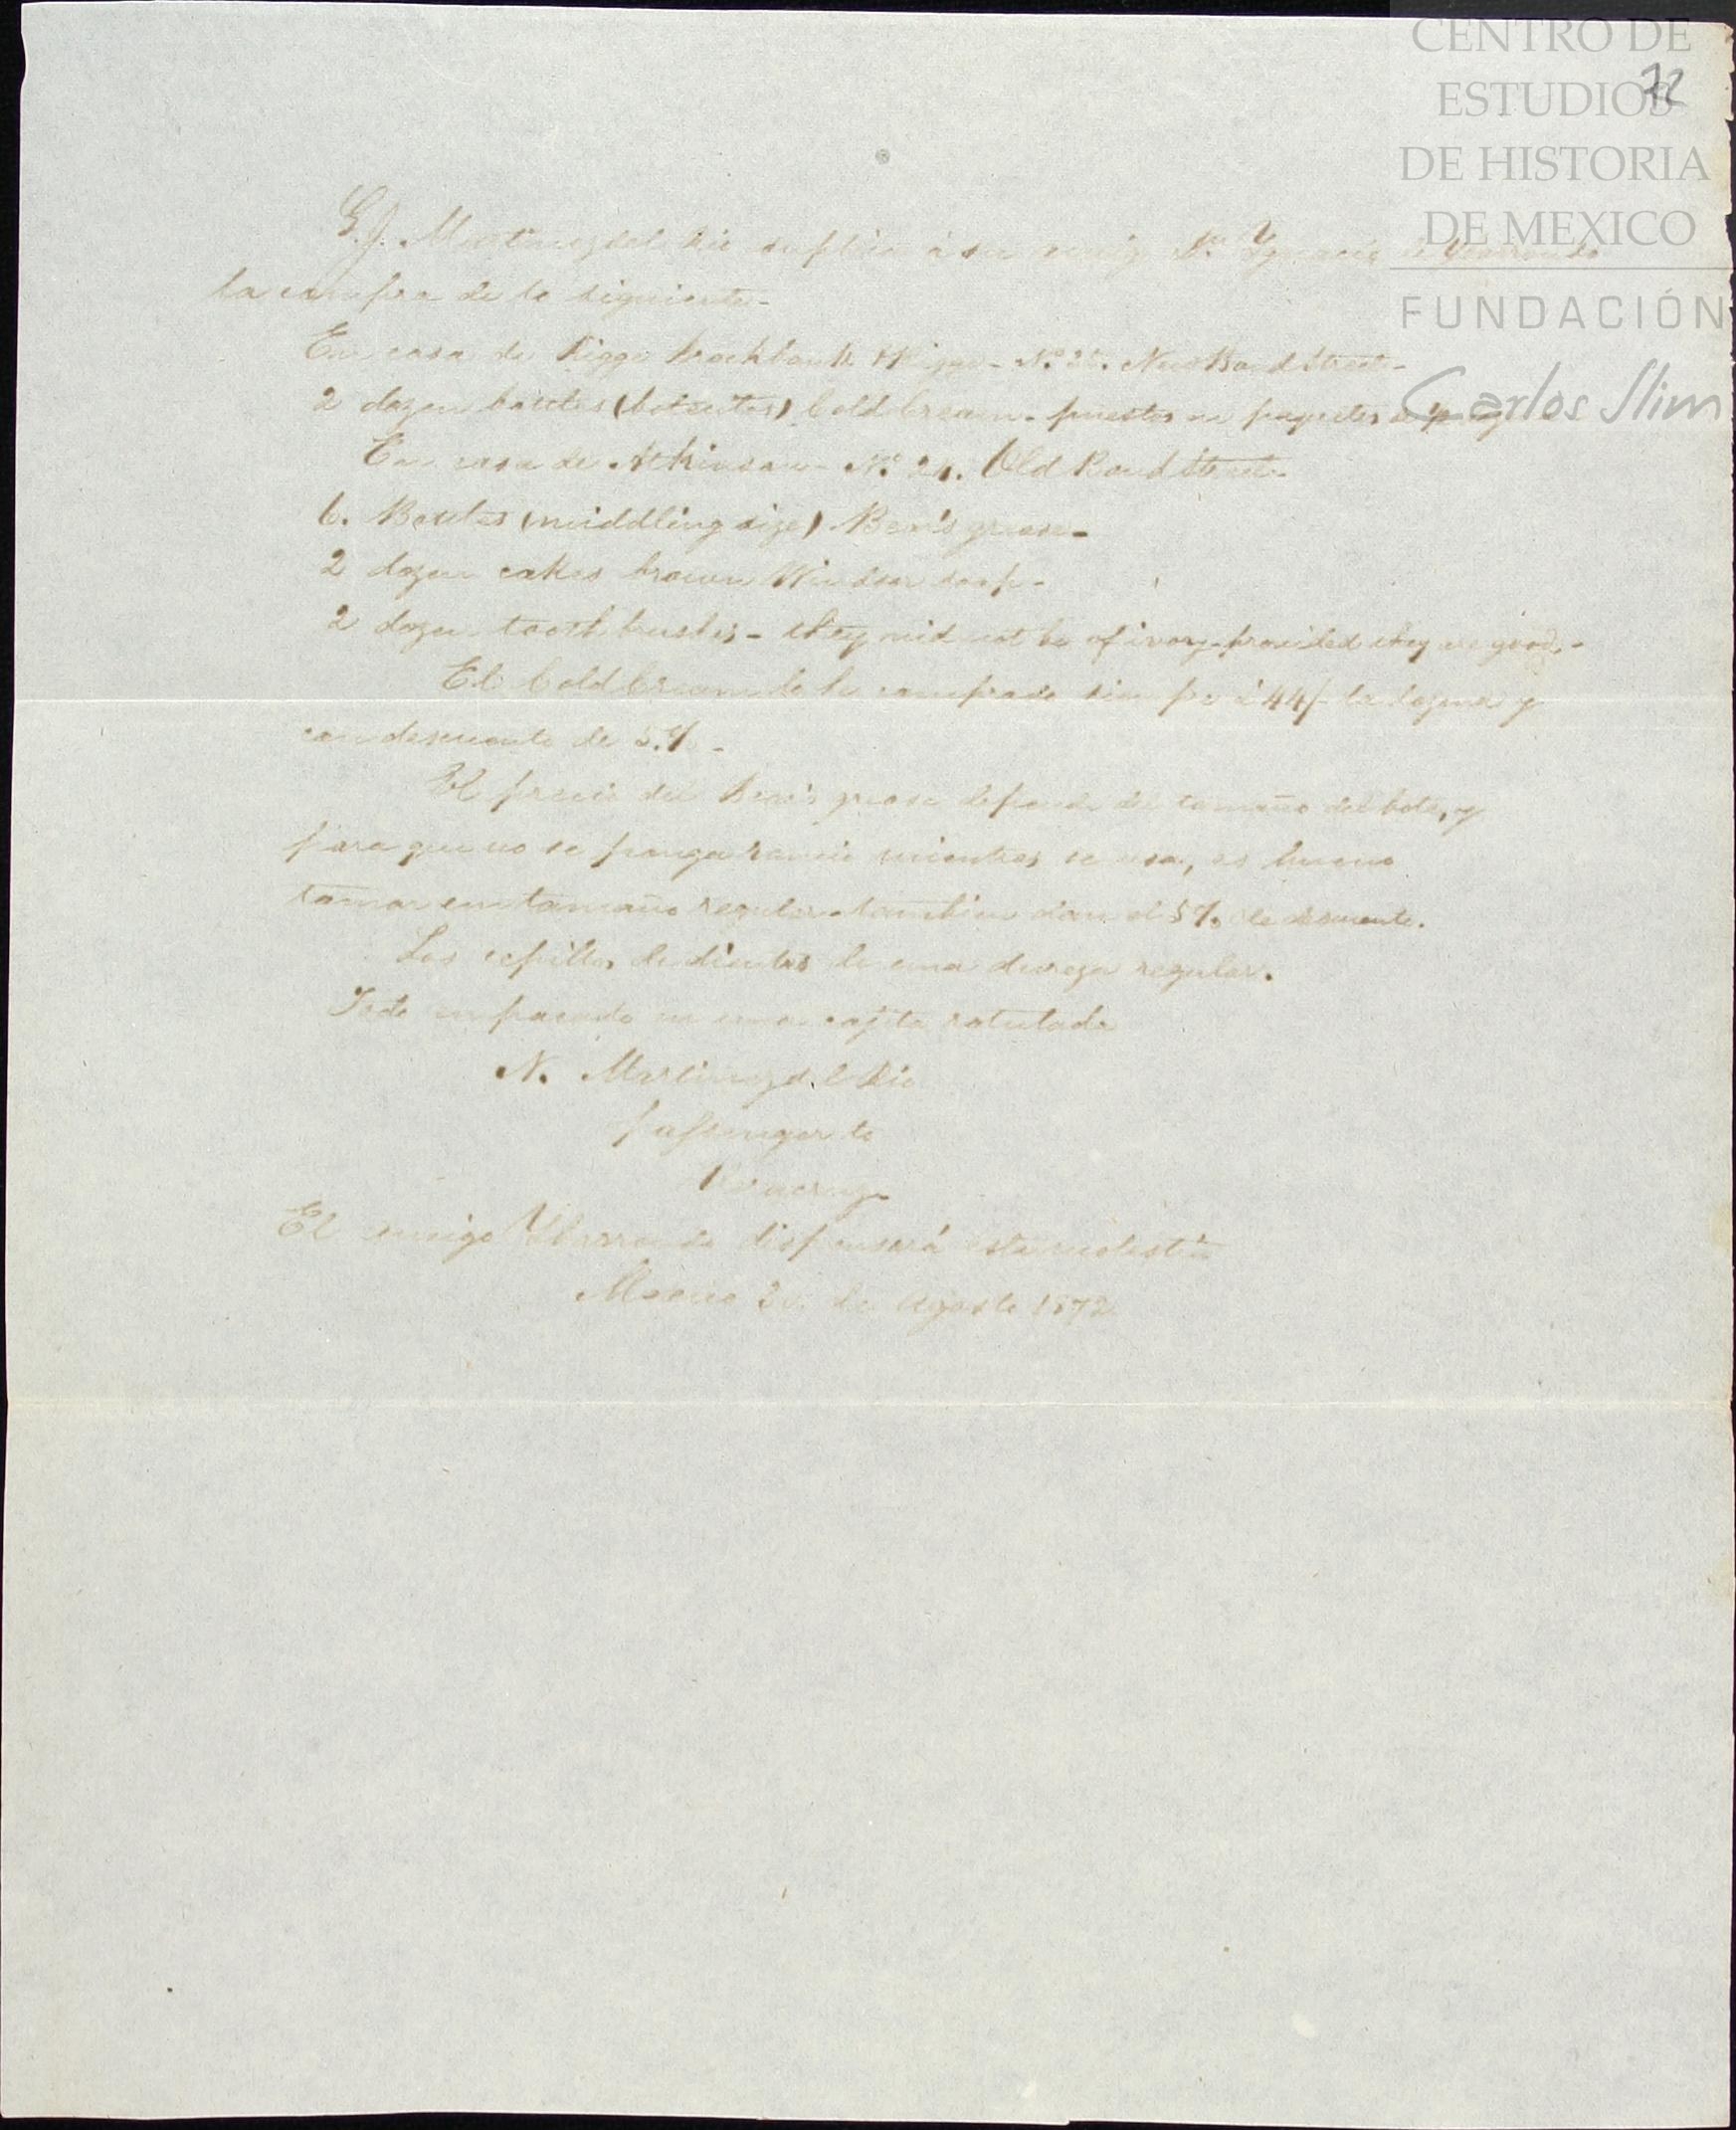 CENTRO DE
ESTUDIOS
DE HISTORIA
DE MEXICO
FUNDACIÓN
Carlos Slim
72
G. J. Martinez del Rio suplica á su amigo Dn. Ygnacio
la compra de lo siguiente-
En casa de Riggs Brockbank & Riggs- No. New Bond Street-
2 dozen bottles (botecitos) Cold Cream. puestos en paquetes
En casa de Atkinson- No. 24. Old Bond Street-
6. Bottles (middling size) Bear's grease-
2 dozen cakes brown Windsor soap-
2 dozen tooth brushes- they nid not be of ivory- provided they are good.-
El Cold Cream lo he comprado siempre á 44/- la dozena y
con descuento de 5.%-
El precio del Bear's grease depende del tamaño del bote, y
para que no se ponga rancio mientras se usa, es bueno
tomar un tamaño regular. tambien dan el 5% de descuento.
Los cepillos de dientes de una dureza regular.
Todo empacado en una cajita rotulada
N. Martinez del Rio
passenger to
Veracruz-
El amigo dispensará esta molestia
Mexico de Agosto 1872